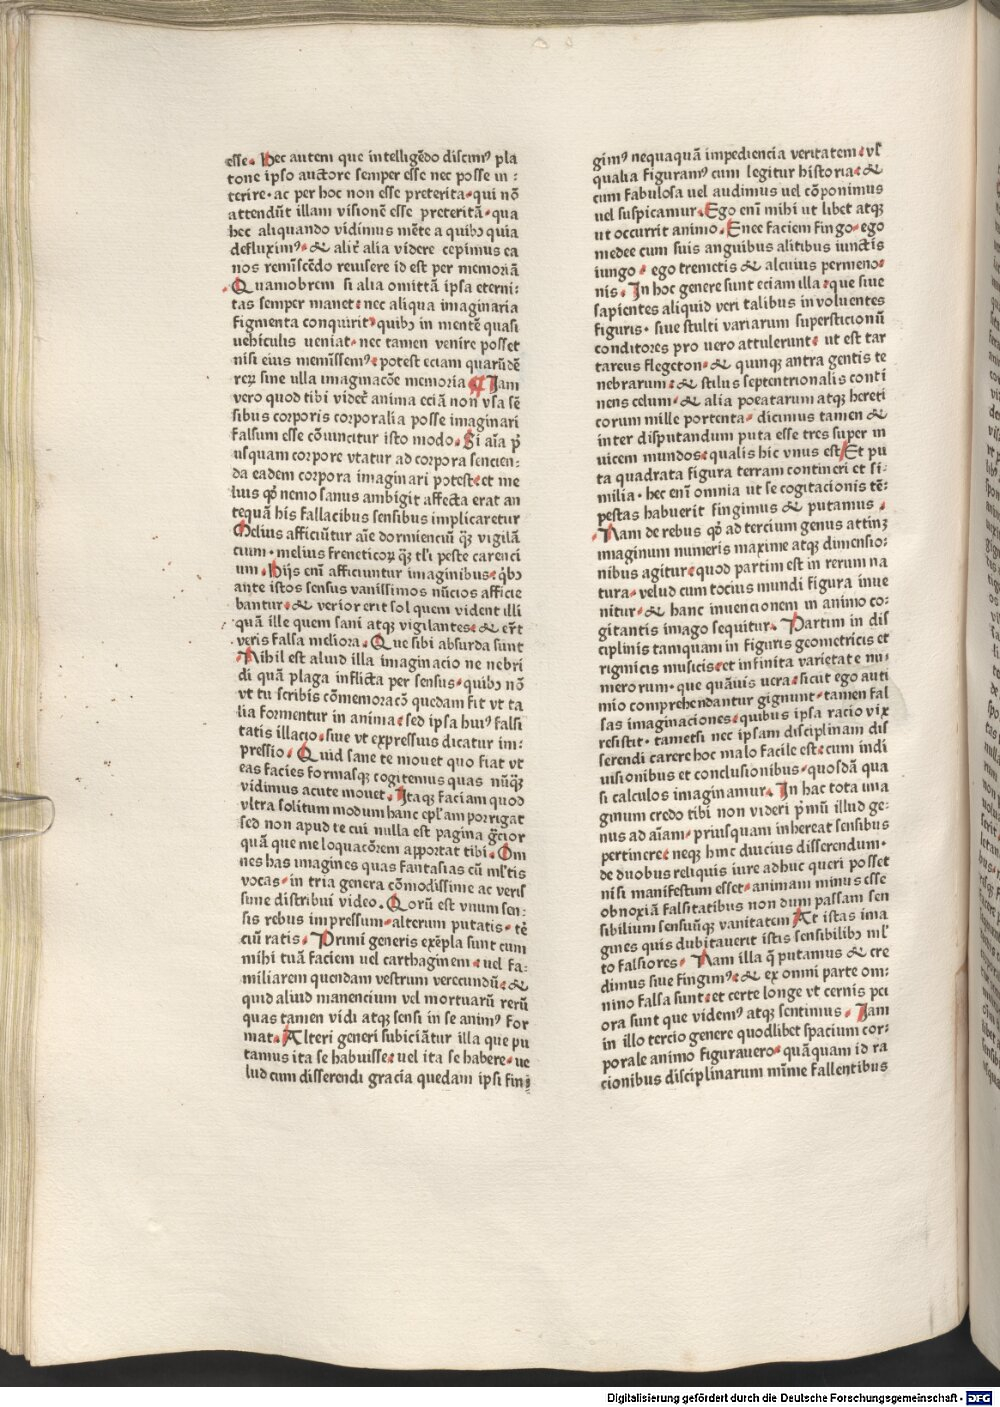 esse. Hec autem que intelligēdo discimꝰ pla
tone ipso auctore semper esse nec posse in :
terire· ac per hoc non esse preterita· qui nō
attendūt illam visionē esse preteritā· qua
hec aliquando vidimus mēte a quibꝫ quia
defluximꝰ· & alit̄ alia videre cepimus ea
nos remīscēdo reuisere id est per memoriā
Quamobrem si alia omittā ipsa eterni:
tas semper manet· nec aliqua imaginaria
figmenta conquirit· quibꝫ in mentē quasi
uehiculis ueniat· nec tamen venire posset
nisi eius meminissemꝰ· potest eciam quarūdē
reꝝ sine ulla imaginacōe memoria Jam
vero quod tibi videt̄ anima eciā non vsa sē
sibus corporis corporalia posse imaginari
falsum esse cōuincitur isto modo. Si aīa p̄
usquam corpore vtatur ad corpora sencien:
da eadem corpora imaginari potest· et me
lius qꝫ nemo sanus ambigit affecta erat an
tequā his fallacibus sensibus implicaretur
Melius afficiūtur aīe dormienciū qꝫ vigilā
cium· melius freneticoꝝ qꝫ tl̄i peste carenci
um. Hijs enī afficiuntur imaginibus· qͥbꝫ
ante istos sensus vanissimos nūcios afficie
bantur· & verior erit sol quem vident illi
quā ille quem sani atqꝫ vigilantes· & er̄t
veris falsa meliora. Que sibi absurda sunt
Nihil est aliud illa imaginacio ne nebri
di quā plaga inflicta per sensus· quibꝫ nō
vt tu scribis cōmemoracō quedam fit vt ta
lia formentur in anima· sed ipsa huiꝰ falsi
tatis illacio· siue vt expressius dicatur im:
pressio. Quid sane te mouet quo fiat vt
eas facies formasqꝫ cogitemus quas nūqꝫ
vidimus acute mouet. Jtaqꝫ faciam quod
vltra solitum modum hanc epl̄am porrigat
sed non apud te cui nulla est pagina gͣcior
quā que me loquacōrem apportat tibi. Om
nes has imagines quas fantasias cū ml̄tis
vocas· in tria genera cōmodissime ac veris
sime distribui video. Qorū est vnum sen:
sis rebus impressum· alterum putatis· tē
ciū ratis. Primi generis exēpla sunt cum
mihi tuā faciem uel carthaginem· uel fa:
miliarem quendam vestrum verecundū· &
quid aliud manencium vel mortuarū rerū
quas tamen vidi atqꝫ sensi in se animꝰ for
mat. Alteri generi subiciātur illa que pu
tamus ita se habuisse· uel ita se habere· ue
lud cum disserendi gracia quedam ipsi fin
gimꝰ nequaquā impediencia veritatem· vl̄
qualia figuramꝰ cum legitur historia· &
cum fabulosa uel audimus uel cōponimus
uel suspicamur. Ego enī mihi ut libet atqꝫ
ut occurrit animo. Enee faciem fingo· ego
medee cum suis anguibus alitibus iunctis
iungo· ego tremetis & alcuius permeno·
nis. Jn hoc genere sunt eciam illa· que siue
sapientes aliquid veri talibus inuoluentes
figuris· siue stulti variarum supersticionū
conditores pro uero attulerunt· ut est tar
tareus flegeton· & quinqꝫ antra gentis te
nebrarum· & stilus septentrionalis conti
nens celum· & alia poeatarum atqꝫ hereti
corum mille portenta· dicimus tamen &
inter disputandum puta esse tres super in
uicem mundos· qualis hic vnus est Et pu
ta quadrata figura terram contineri et si:
milia· hec enī omnia ut se cogitacionis tē:
pestas habuerit fingimus & putamus.
Nam de rebus qꝫ ad tercium genus attinꝫ
imaginum numeris maxime atqꝫ dimensio:
nibus agitur· quod partim est in rerum na
tura· velud cum tocius mundi figura inue
nitur· & hanc inuencionem in animo co:
gitantis imago sequitur. Partim in dis
ciplinis tamquam in figuris geometricis et
rigmicis musicis· et infinita varietate nu:
merorum· que quāuis uera· sicut ego auti
mio comprehendantur gignunt· tamen fal
sas imaginaciones· quibus ipsa racio vix
resistit· tametsi nec ipsam disciplinam dis
serendi carere hoc malo facile est· cum indi
uisionibus et conclusionibus· quosdā qua
si calculos imaginamur. Jn hac tota ima
ginum credo tibi non videri p̄mū illud ge:
nus ad aīam· priusquam inhereat sensibus
pertinere· neqꝫ hinc diucius disserendum·
de duobus reliquis iure adhuc queri posset
nisi manifestum esset· animam minus esse
obnoxiā falsitatibus non dum passam sen
sibilium sensuūqꝫ vanitatem At istas ima
gines quis dubitauerit istis sensibilibꝫ ml̄
to falsiores. Nam illa q̄ putamus & cre
dimus siue fingimꝰ· & ex omni parte om:
nino falsa sunt· et certe longe vt cernis pci
ora sunt que videmꝰ atqꝫ sentimus. Jam
in illo tercio genere quodlibet spacium cor:
porale animo figurauero· quāquam id ra
cionibus disciplinarum minime fallentibus
Digitalisierung gefördert durch die Deutsche Forschungsgemeinschaft - DFG